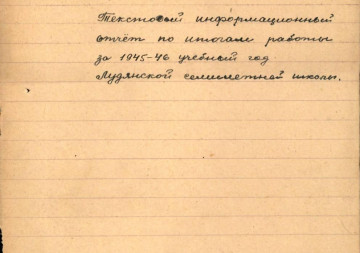 Текстовый информационный
отчёт по итогам работы
за 1945-46 учебный год
Лудянской семилетней школы.